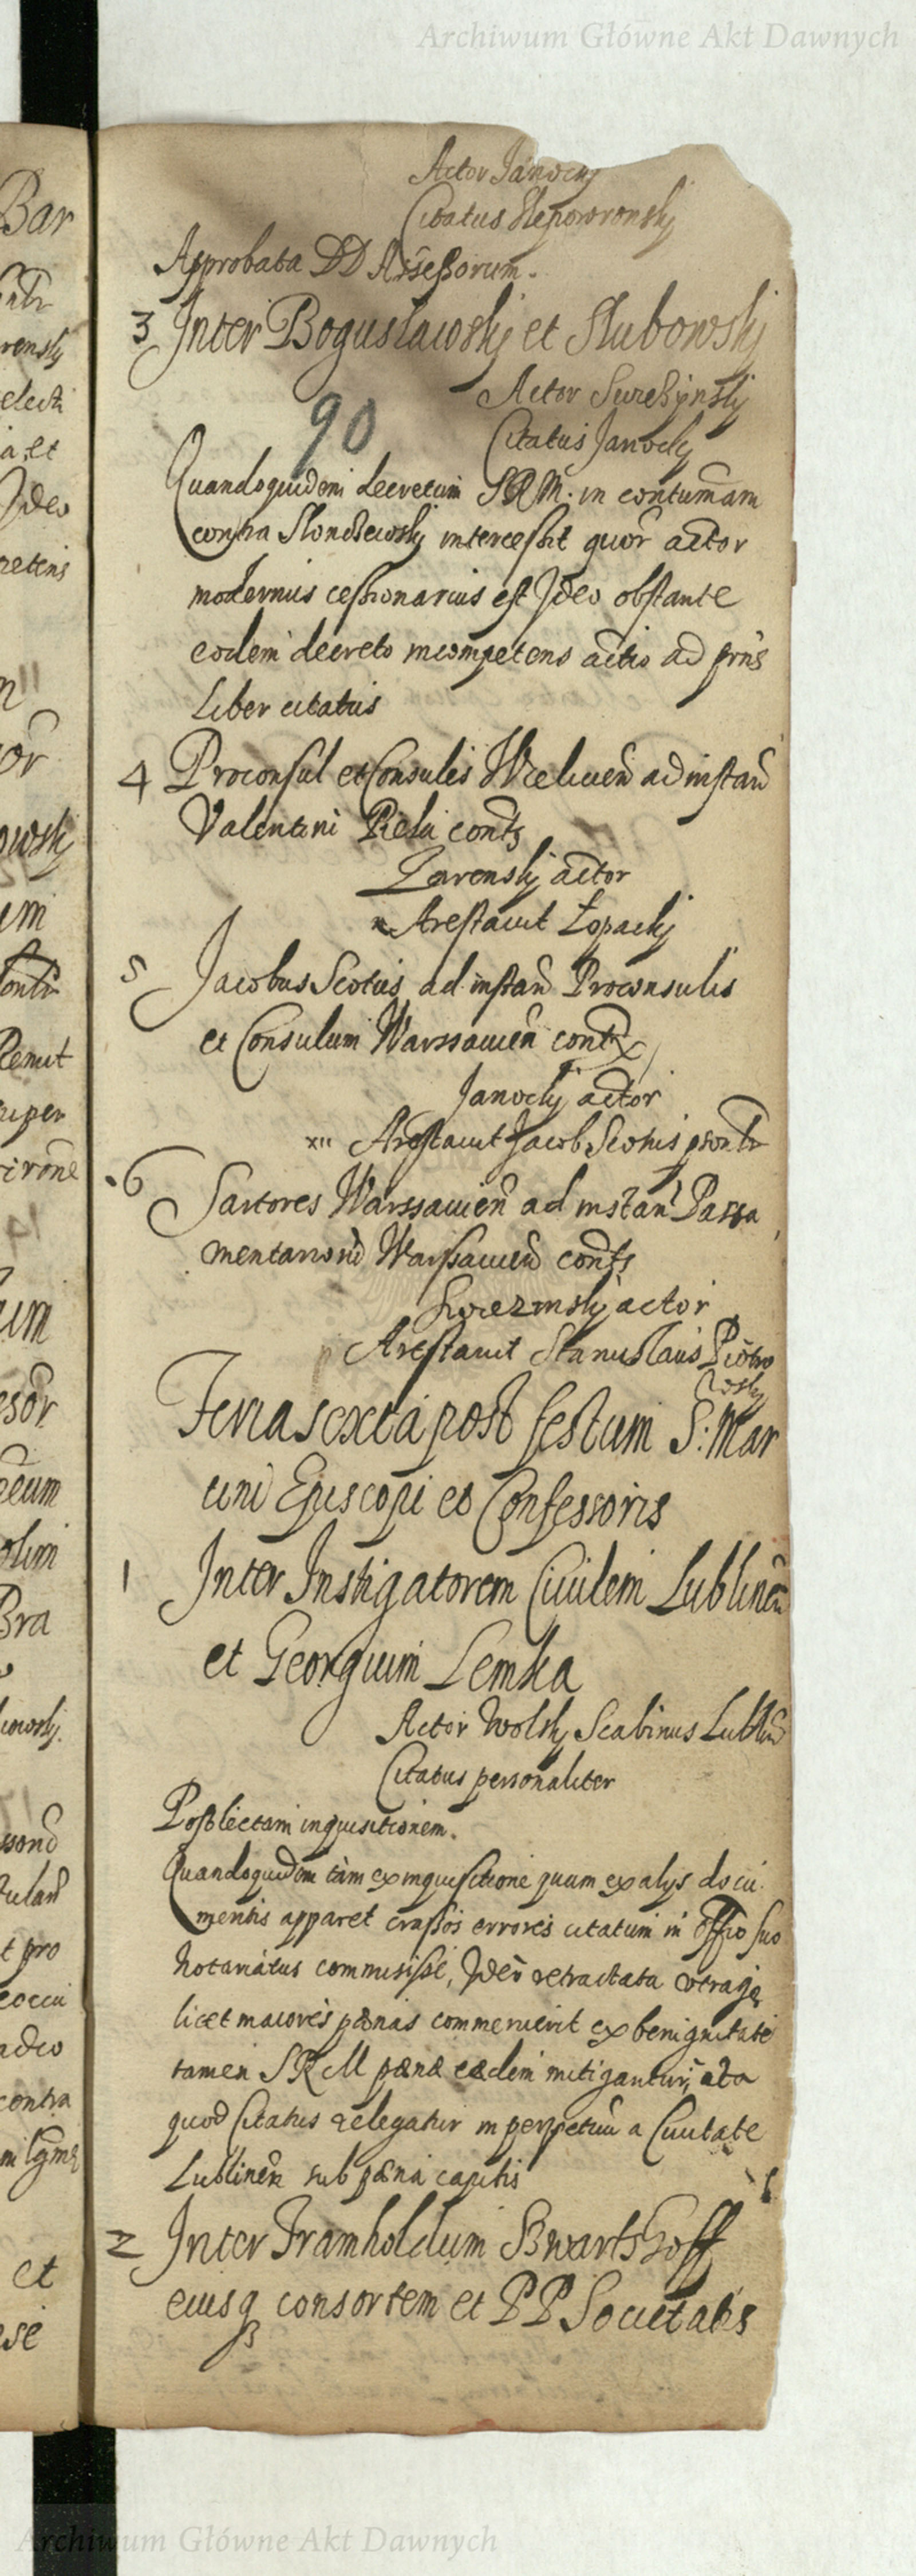 Archiwum Główne Akt Dawnych
Bar
Actor Janocky
Citatus Slepowronsky
Approbata DD Assessorum.
3 Inter Bogusławsky et Slubowsky
Actor Swezynsky
90
Citatus Janocky
Quandoquidem decretum SRM. in contumam
contra Slonczewsky intercessit quor actor
modernus cessionarius est Ideo obstante
eodem decreto incompetens actio ad prns
Liber citatus
4 Proconsul et Consules Wieluen ad instan
Valentini Piela conts
Zarensky actor
Arestavit Łopacky
5 Jacobus Scotus ad instan Proconsulis
et Consulum Warssavien contx
Janocky actor
xii Arestavit Jacob Scotus
6 Sartores Warssavien ad instan Passa
mentariorū Warssavien conts
Swezinsky actor
Arestavit Stanislaus Piotro
wsky
Feria sexta post festum S: Mar
tini Episcopi et Confessoris
1 Inter Instigatorem Civilem Lublinen
et Georgium Lemka
Actor Wolsky Scabinus Lublin
Citatus personaliter
Post lectam inquisitionem.
Quandoquidem tam ex inquisitione quum ex alys docu
mentis apparet crassos errores citatum in offio suo
Notariatus commisisse, Ideo retractata
licet maiores pænas commeruerit ex benignitate
tamen SRM pænæ eædem mitigantur, ita
quod Citatus relegatur in perpetuū a Civitate
Lublinen sub pæna capitis
2 Inter Framholdum Swartzhoff
eiusq consortem et PP Societatis
Archiwum Główne Akt Dawnych